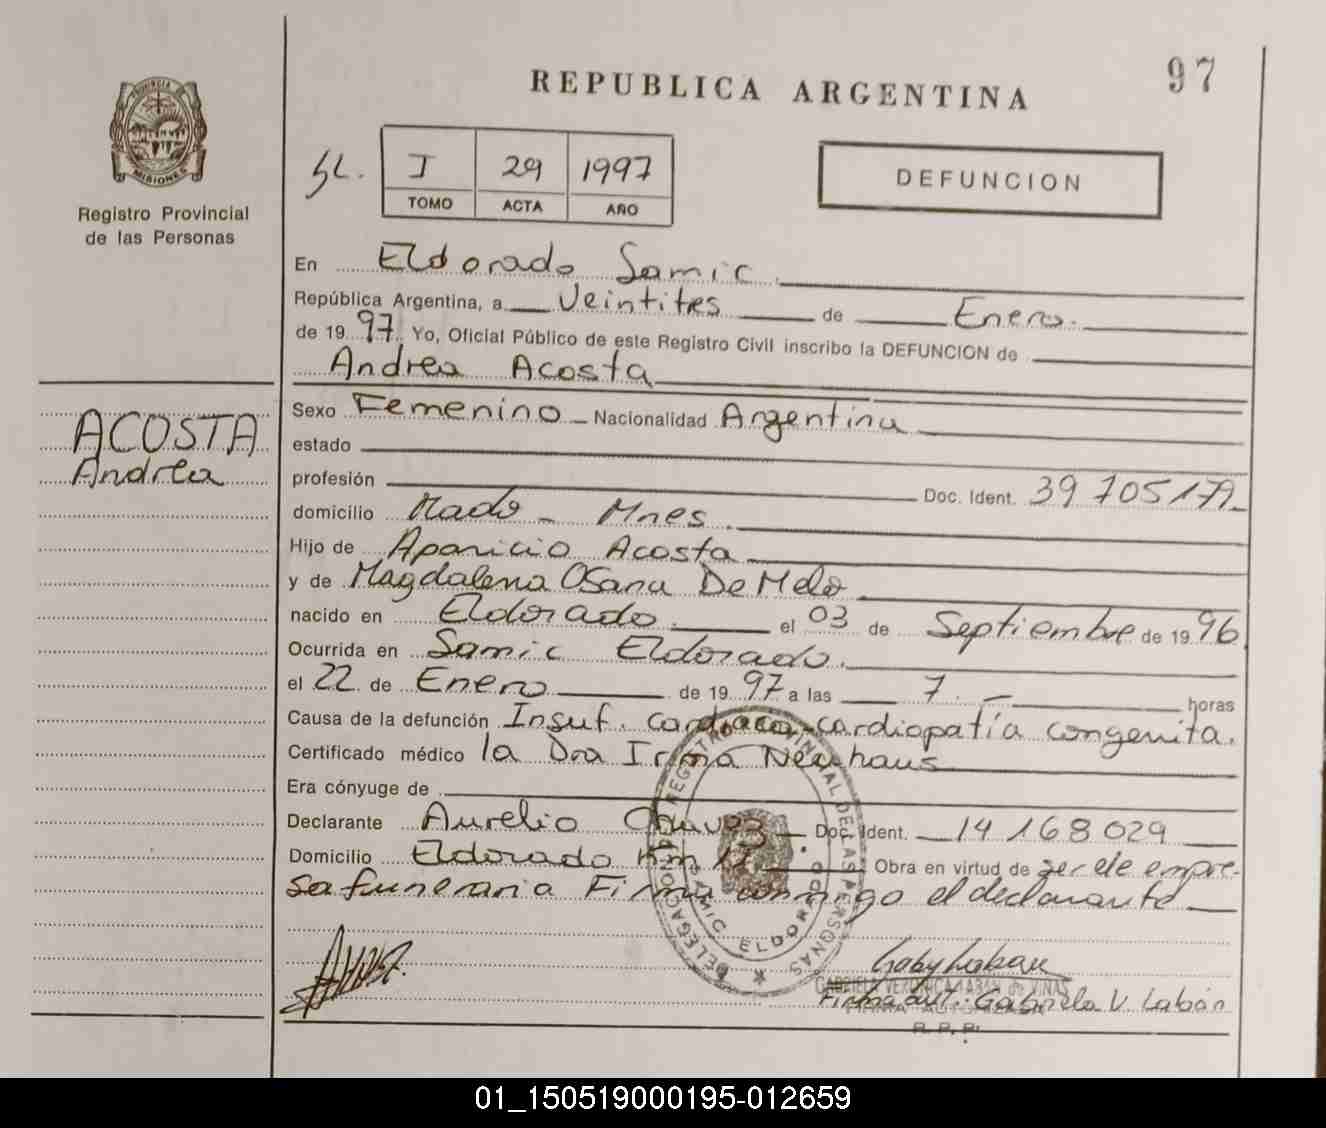 97
REPUBLICA ARGENTINA
PROVINCIA DE
MISIONES
Registro Provincial
de las Personas
SL.
I 29 1997
TOMO ACTA AÑO
DEFUNCION
En Eldorado Samic.
República Argentina, a Veintitres de Enero.
de 19 97 Yo, Oficial Público de este Registro Civil inscribo la DEFUNCION de
Andrea Acosta
ACOSTA
Andrea
Sexo Femenino Nacionalidad Argentina
estado
profesión Doc. Ident. 39 705 179
domicilio Mado - Mnes.
Hijo de Aparicio Acosta
y de Magdalena Osana De Melo
nacido en Eldorado. el 03 de Septiembre de 19 96
Ocurrida en Samic Eldorado.
el 22 de Enero de 19 97 a las 7. - horas
Causa de la defunción Insuf. cardiaca - cardiopatía congenita.
Certificado médico la Dra Irma Neuhaus
Era cónyuge de
Declarante Aurelio Doc. Ident. 14 168 029
Domicilio Eldorado Km Obra en virtud de ser de empre-
sa funeraria Firma conmigo el declarante
DELEGACION REGISTRO PROVINCIAL DE LAS PERSONAS
SAMIC ELDORADO
Gaby Laban
GABRIELA VERONICA LABAN de VIÑAS
Firma aut. Gabriela V. Labán
FIRMA AUTORIZADA
R. P. P.
01_150519000195-012659